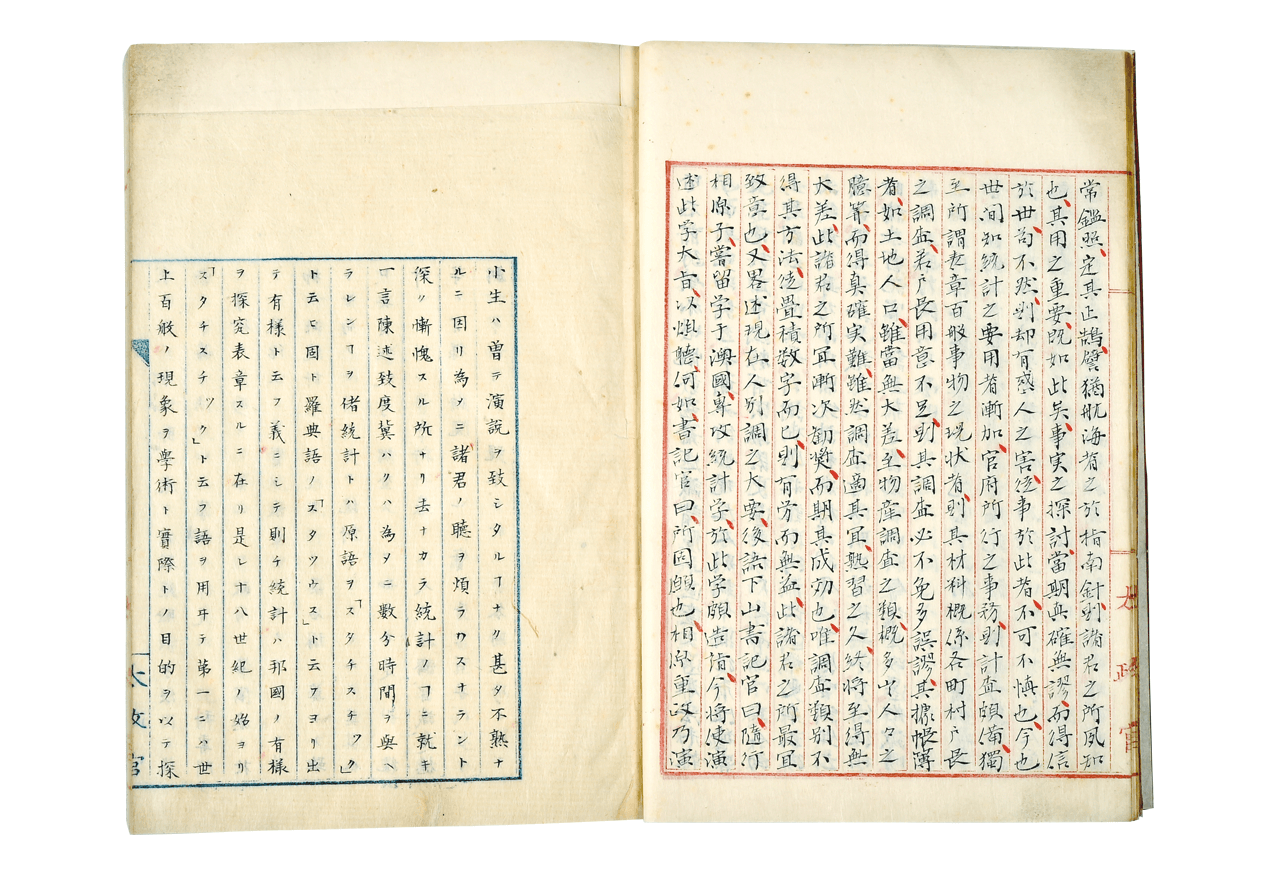 太政官
常鑑照定其正鵠譬猶航海者之於指南針則諸君之所夙知
也其用之重要既如此矣事実之探討當期真確無謬而得信
於世苟不然則却有惑人之害従事於此者不可不慎也今也
世間知統計之要用者漸加官府所行之事務則計査頗備獨
至所謂表章百般事物之現状者則其材料概係各町村戸長
之調査若戸長用意不足則其調査必不免多誤謬其據帳簿
者如土地人口雖當無大差至物産調査之類概多出人々之
臆算而得真確実難雖然調査適其宜熟習之久終將至得無
大差此諸君之所宜漸次勧奬而期其成効也唯調査類別不
得其方法徒畳積数字而已則有労而無益此諸君之所最宜
致意也又畧述現在人別調之大要後語下山書記官曰隨行
相原子嘗留学于澳國専攻統計学於此学頗造詣今將使演
述此学大旨以煩聴何如書記官曰所固願也相原重政乃演
小生ハ曽テ演説ヲ致シタルヿナク甚タ不熟ナ
ルニ因リ為メニ諸君ノ聴ヲ煩ラワスナラント
深ク慚愧スル所ナリ去ナカラ統計ノヿニ就キ
一言陳述致度冀ハクハ為メニ數分時間ヲ與ヘ
ラレンヿヲ偖統計トハ原語ヲ「スタチスチツク」
ト云ヒ固ト羅典語ノ「スタツウス」ト云フヨリ出
テ有様ト云フ義ニシテ則チ統計ハ邦國ノ有様
ヲ探究表章スルニ在リ是レ十八世紀ノ始ヨリ
「スタチスチツク」ト云フ語ヲ用ヰテ第一ニハ世
上百般ノ現象ヲ學術ト實際トノ目的ヲ以テ探
太政官